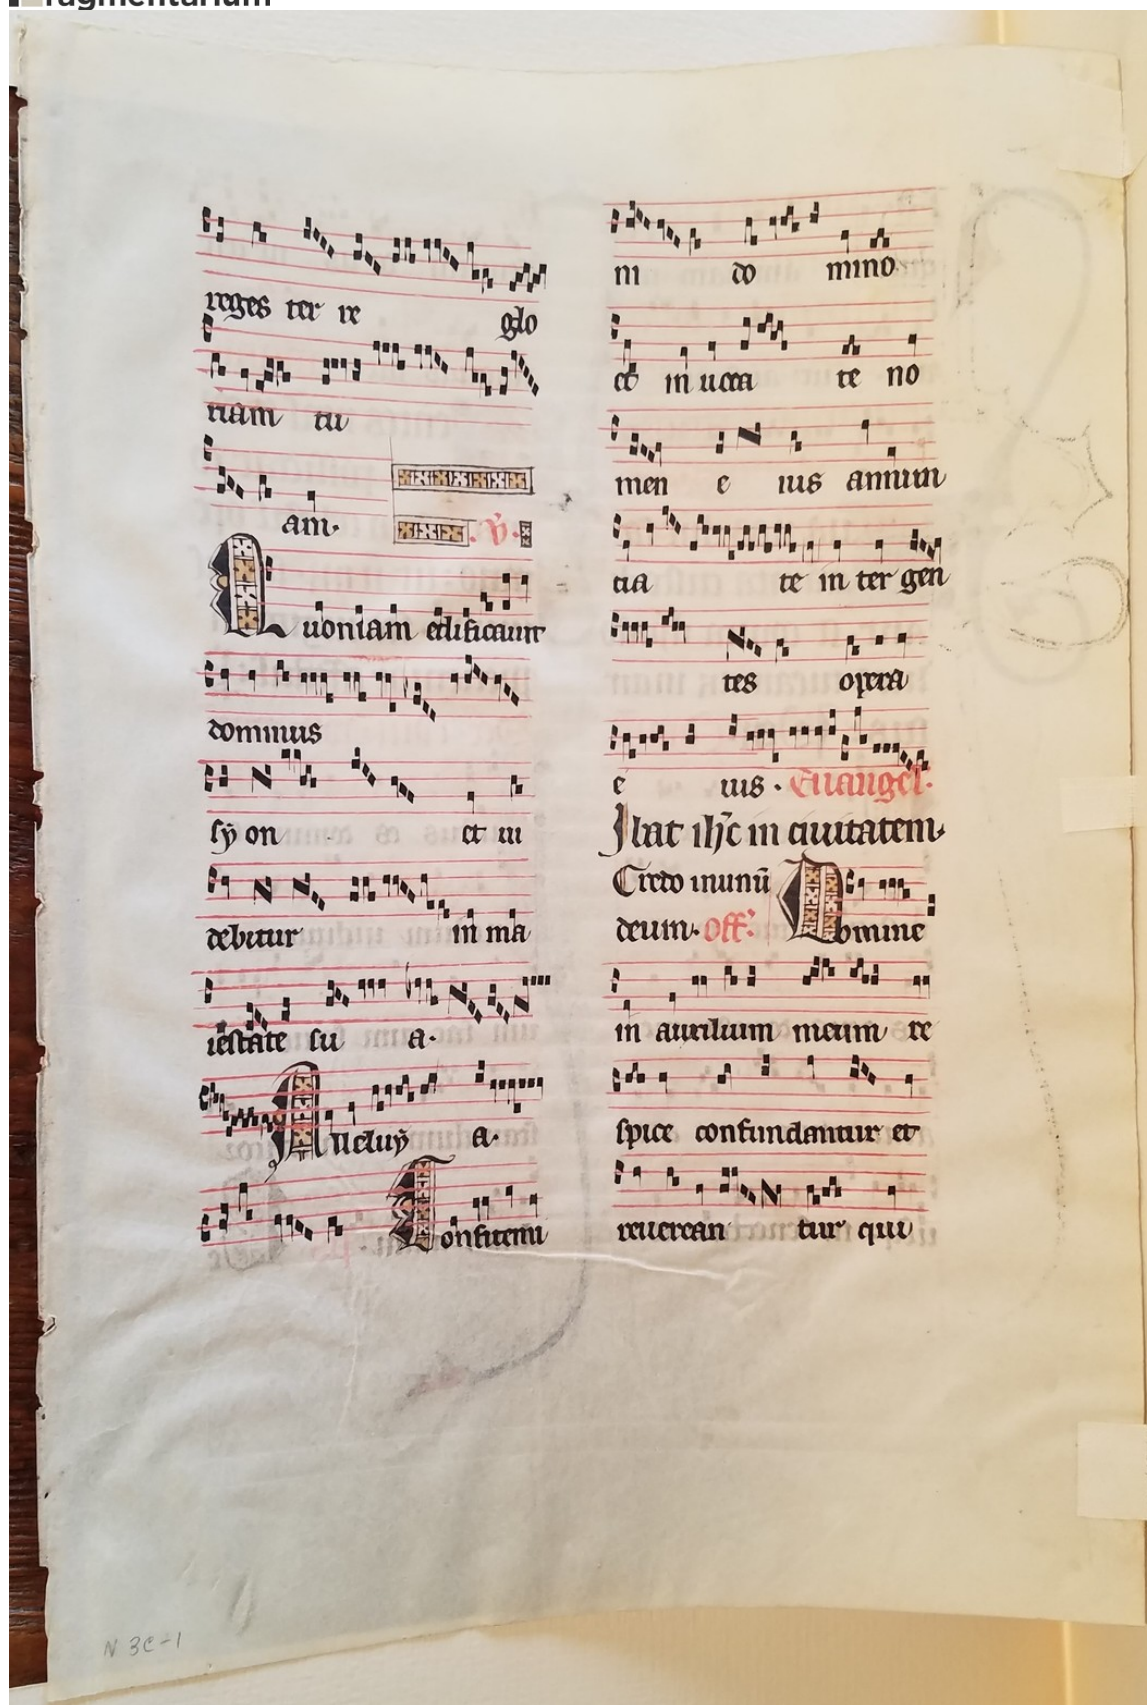 ragmentarium
reges ter re glo
riam tu
am. ℣.
Quoniam edificauit
dominus
sy on et ui
debitur in ma
iestate su a.
Alleluy a.
Confitemi
ni do mino
et inuoca te no
men e ius annun
cia te in ter gen
tes opera
e ius. Euangel.
Ibat ihc in ciuitatem.
Credo inunū
deum. Off. Domine
in auxilium meum re
spice confundantur et
reuerean tur qui
N 3C-1